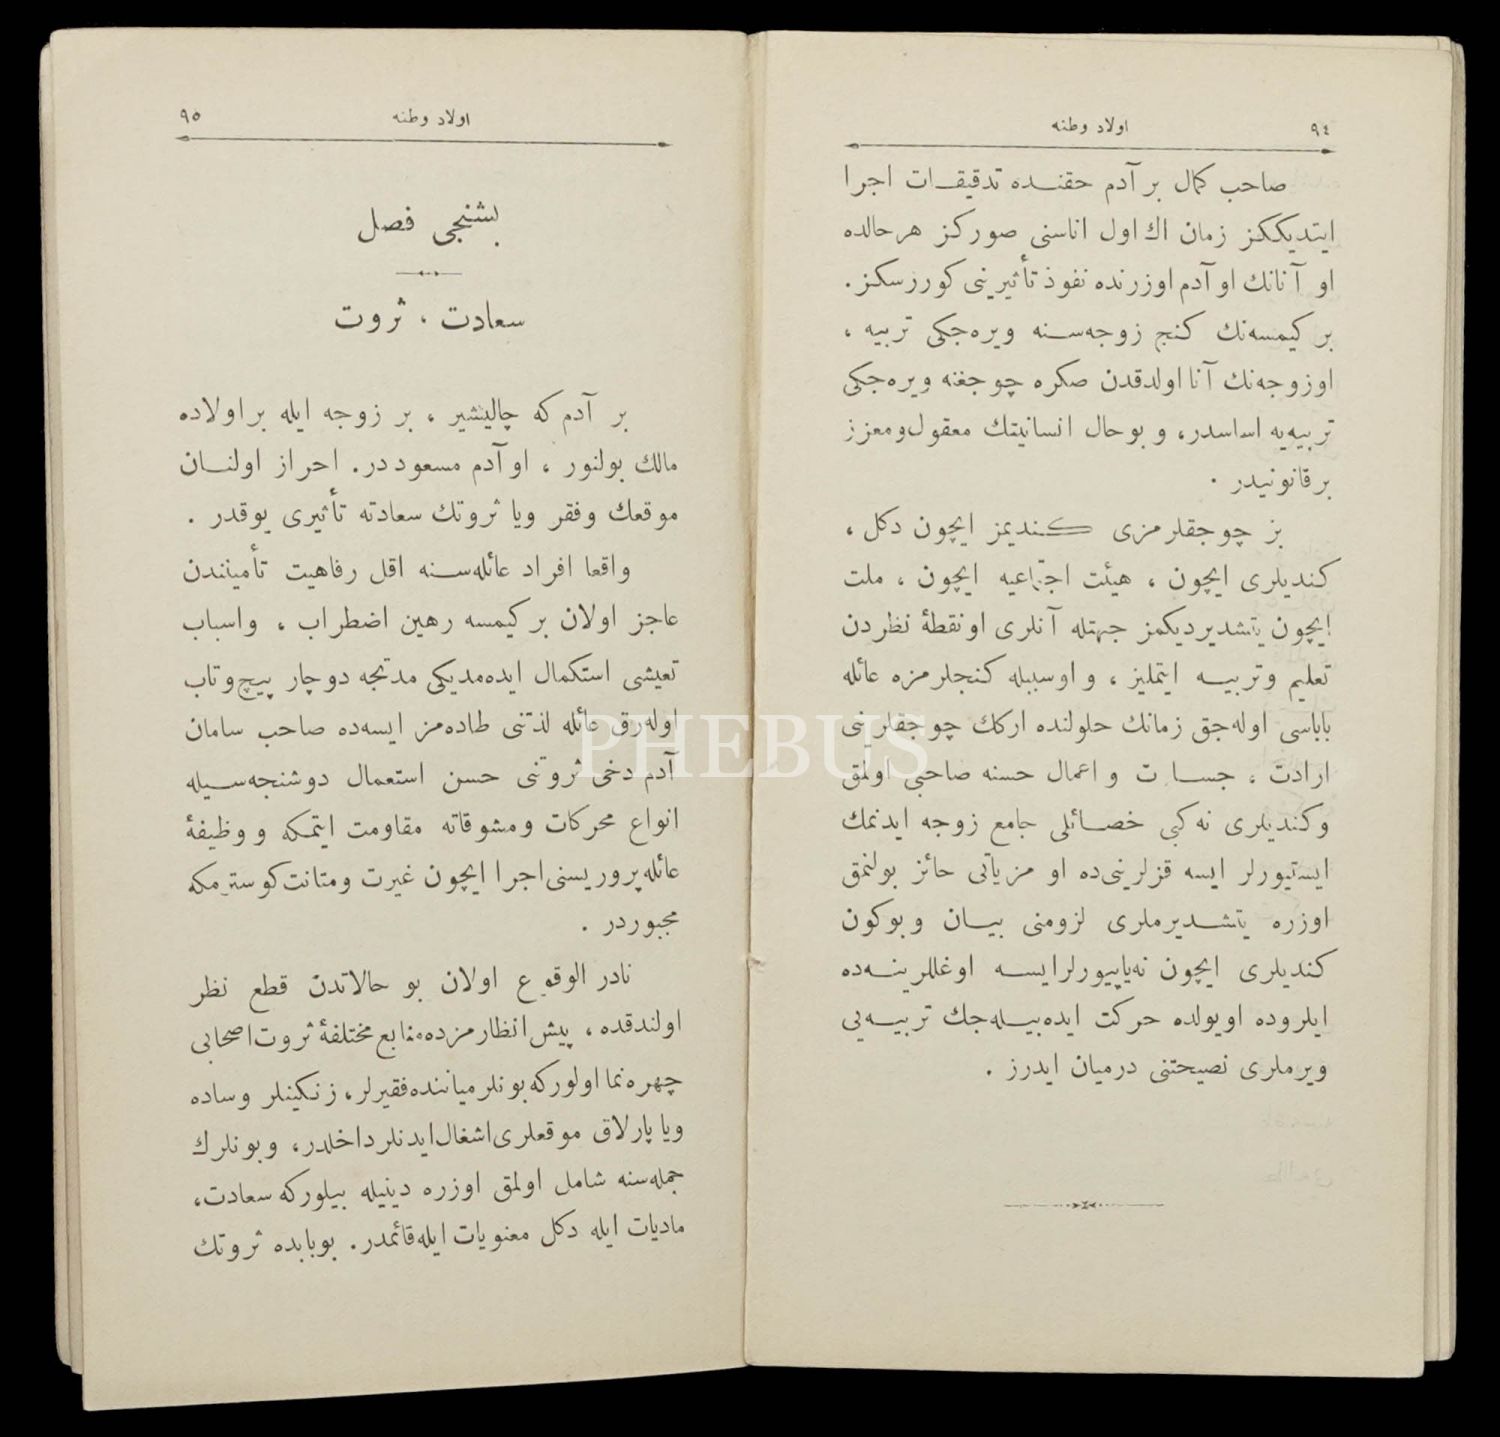 ٩٤
اولاد وطنه
صاحب كمال بر آدم حقنده تدقيقات اجرا
ايتديككز زمان اك اول اناسنى صوركز هرحالده
او آنانك او آدم اوزرنده نفوذ تأثيرينى كوررسكز .
بر كيمسه‌نك كنج زوجه‌سنه ويره‌جكى تربيه ،
اوزوجه‌نك آنا اولدقدن صكره چوجغنه ويره‌جكى
تربيه‌يه اساسدر، و بوحال انسانيتك معقول ومعزز
برقانونيدر .
بز چوجقلرمزى كنديمز ايچون دكل ،
كنديلرى ايچون ، هيئت اجتماعيه ايچون ، ملت
ايچون يتشديرديكمز جهتله آنلرى اونقطۀ نظردن
تعليم وتربيه ايتمليز ، و اوسببله كنجلرمزه عائله
باباسى اوله‌جق زمانك حلولنده اركك چوجقلرينى
ارادت ، جسارت و اعمال حسنه صاحبى اولمق
وكنديلرى نه كبى خصائلى جامع زوجه ايدنمك
ايسته‌يورلر ايسه قزلرينى‌ده او مزياتى حائز بولنمق
اوزره يتشديرملرى لزومنى بيان وبوكون
كنديلرى ايچون نه‌ياپيورلرايسه اوغللرينه‌ده
ايلروده اويولده حركت ايده‌بيله‌جك تربيه‌يى
ويرملرى نصيحتنى درميان ايدرز .
اولاد وطنه
٩٥
بشنجى فصل
سعادت ، ثروت
بر آدم كه چاليشير ، بر زوجه ايله براولاده
مالك بولنور ، او آدم مسعوددر. احراز اولنان
موقعك وفقر ويا ثروتك سعادته تأثيرى يوقدر .
واقعا افراد عائله‌سنه اقل رفاهيت تأميننندن
عاجز اولان بر كيمسه رهين اضطراب ، واسباب
تعيشى استكمال ايده‌مديكى مدتجه دوچار پيچ‌وتاب
اوله‌رق عائله لذتنى طاده‌مز ايسه‌ده صاحب سامان
آدم دخى ثروتنى حسن استعمال دوشنجه‌سيله
انواع محركات ومشوقاته مقاومت ايتمكه و وظيفۀ
عائله‌پروريسنى اجرا ايچون غيرت ومتانت كوسترمكه
مجبوردر .
نادر الوقوع اولان بو حالاتدن قطع نظر
اولندقده ، پيش انظارمزده منابع مختلفۀ ثروت اصحابى
چهره‌نما اولوركه بونلر مياننده فقيرلر، زنكينلر وساده
ويا پارلاق موقعلرى اشغال ايدنلر داخلدر، وبونلرك
جمله‌سنه شامل اولمق اوزره دينيله بيلوركه سعادت،
ماديات ايله دكل معنويات ايله قائمدر. بوبابده ثروتك
PHEBUS